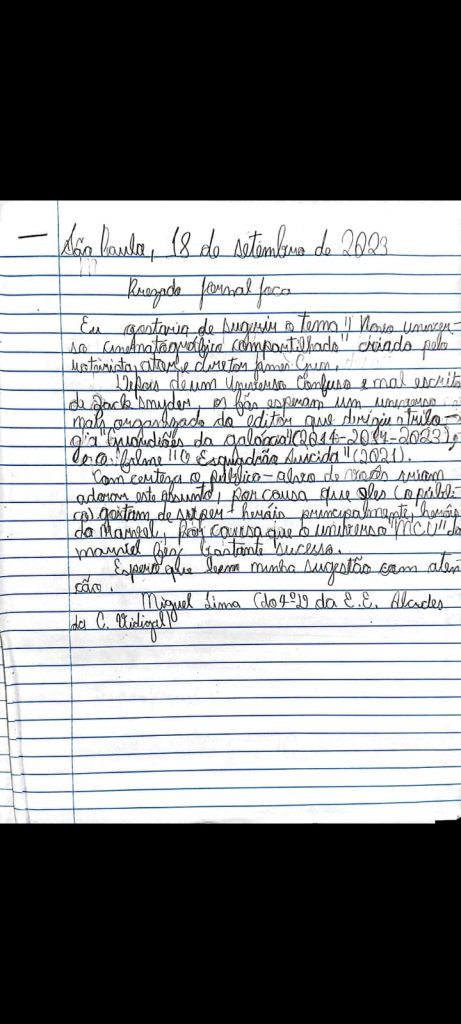 São Paulo, 18 de setembro de 2023
Prezado Jornal Joca
Eu gostaria de sugerir o tema "Novo univer-
so cinematográfico compartilhado" criado pelo
roteirista, ator e diretor James Gun.
Depois de um Universo confuso e mal escrito
de Zack Snyder, os fãs esperam um universo
mais organizado do editor que dirigiu a trilo-
gia "Guardiões da galáxia" (2014-2017-2023)
e o filme "O Esquadrão Suicida" (2021).
Com certeza o público-alvo de vocês iriam
adorar este assunto, por causa que eles (o públi-
co) gostam de super-heróis principalmente, heróis
da Marvel, por causa que o universo "MCU" da
marvel fez bastante sucesso.
Espero que leem minha sugestão com aten
ção.
Miguel Lima (do 7º da E.E. Alcides
da C. Vidigal)